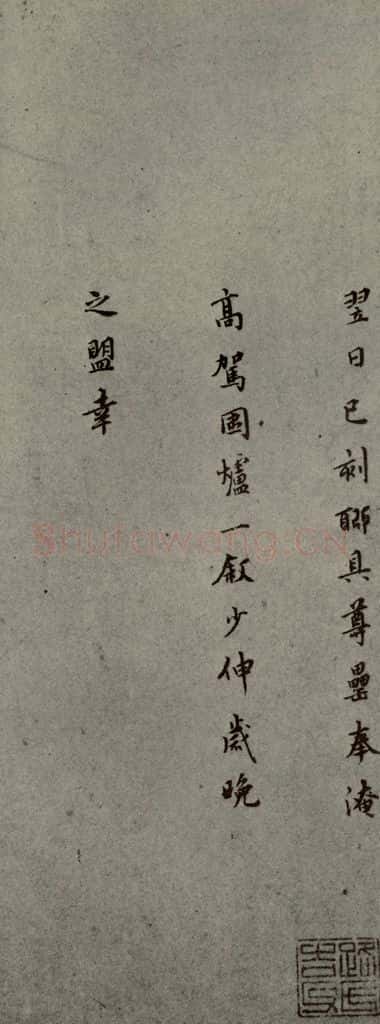 翌日已刻聊具尊罍奉淹
高駕圍爐一叙少伸歲晚
之盟幸
Shufawang.CN